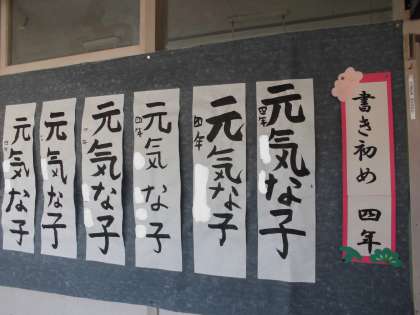 書き初め 四年
元気な子
四年
元気な子
四年
元気な子
四年
元気な子
四年
元気な子
元気な子